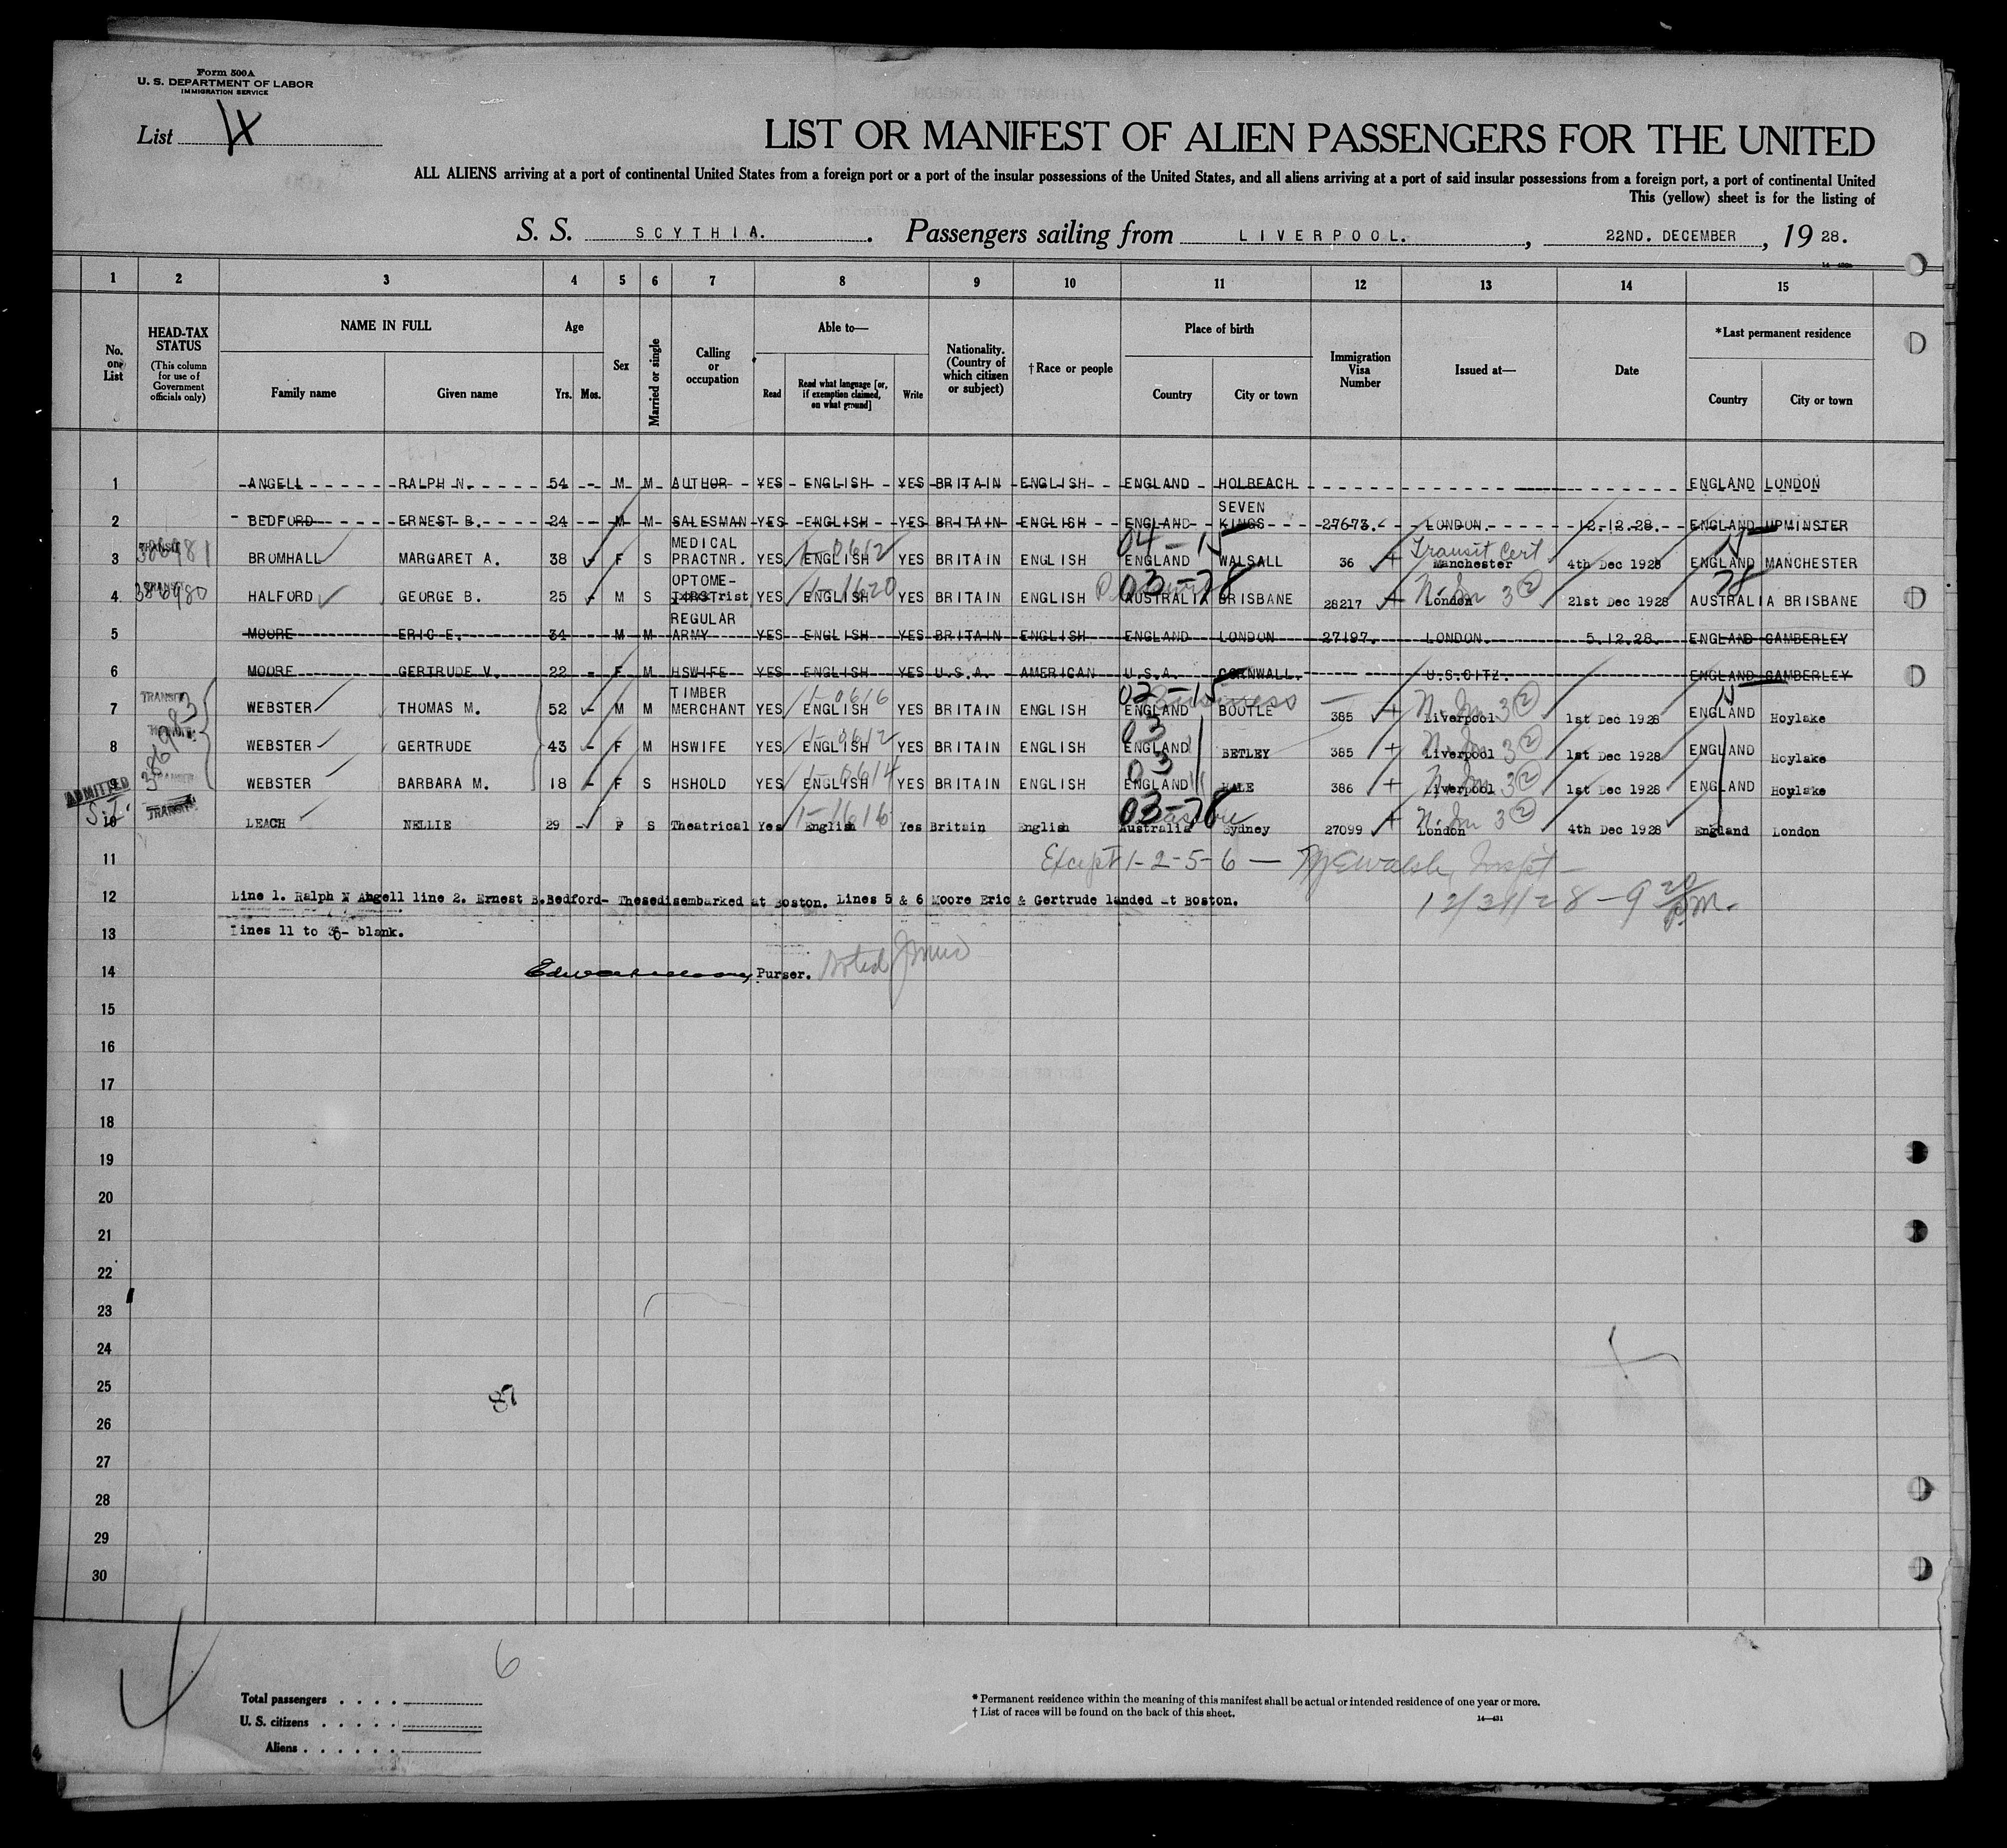 Form 500A
U. S. DEPARTMENT OF LABOR
IMMIGRATION SERVICE
List 4
LIST OR MANIFEST OF ALIEN PASSENGERS FOR THE UNITED
ALL ALIENS arriving at a port of continental United States from a foreign port or a port of the insular possessions of the United States, and all aliens arriving at a port of said insular possessions from a foreign port, a port of continental United
This (yellow) sheet is for the listing of
S. S. SCYTHIA. Passengers sailing from LIVERPOOL. , 22ND. DECEMBER , 19 28.
1 2 3 4 5 6 7 8 9 10 11 12 13 14 15
No. on List
HEAD-TAX STATUS (This column for use of Government officials only)
NAME IN FULL Family name Given name
Age Yrs. Mos.
Sex
Married or single
Calling or occupation
Able to— Read Read what language [or, if exemption claimed, on what ground] Write
Nationality. (Country of which citizen or subject)
†Race or people
Place of birth Country City or town
Immigration Visa Number
Issued at—
Date
*Last permanent residence Country City or town
1 ANGELL RALPH N. 54 M M AUTHOR YES ENGLISH YES BRITAIN ENGLISH ENGLAND HOLBEACH ENGLAND LONDON
2 BEDFORD ERNEST B. 24 M M SALESMAN YES ENGLISH YES BRITAIN ENGLISH ENGLAND SEVEN KINGS 27673. LONDON. 12.12.28. ENGLAND UPMINSTER
3 386981 TRANSIT BROMHALL MARGARET A. 38 F S MEDICAL PRACTNR. YES ENGLISH 1-0612 YES BRITAIN ENGLISH 04-15 ENGLAND WALSALL 36 Transit Cert Manchester 4th Dec 1928 ENGLAND MANCHESTER
4 386980 TRANSIT HALFORD GEORGE B. 25 M S OPTOME- trist YES ENGLISH 1-1620 YES BRITAIN ENGLISH 03-78 AUSTRALIA BRISBANE 28217 London 3(2) 21st Dec 1928 78 AUSTRALIA BRISBANE
5 MOORE ERIC E. 34 M M REGULAR ARMY YES ENGLISH YES BRITAIN ENGLISH ENGLAND LONDON 27197. LONDON. 5.12.28. ENGLAND CAMBERLEY
6 MOORE GERTRUDE V. 22 F M HSWIFE YES ENGLISH YES U.S.A. AMERICAN U.S.A. CORNWALL. U.S.CITZ. ENGLAND CAMBERLEY
7 TRANSIT 386983 WEBSTER THOMAS M. 52 M M TIMBER MERCHANT YES ENGLISH 1-0616 YES BRITAIN ENGLISH 02-15 Business ENGLAND BOOTLE 385 Liverpool 3(2) 1st Dec 1928 ENGLAND Hoylake
8 TRANSIT WEBSTER GERTRUDE 43 F M HSWIFE YES ENGLISH 1-0612 YES BRITAIN ENGLISH 03 ENGLAND BETLEY 385 Liverpool 3(2) 1st Dec 1928 ENGLAND Hoylake
9 TRANSIT WEBSTER BARBARA M. 18 F S HSHOLD YES ENGLISH 1-0614 YES BRITAIN ENGLISH 03 ENGLAND HALE 386 Liverpool 3(2) 1st Dec 1928 ENGLAND Hoylake
ADMITTED S.I. 10 TRANSIT LEACH NELLIE 29 F S Theatrical Yes English 1-1616 Yes Britain English 03-78 Australia Sydney 27099 London 3(2) 4th Dec 1928 England London
11 Except 1-2-5-6 —
12 Line 1. Ralph N Angell line 2. Ernest B.Bedford- Thesedisembarked at Boston. Lines 5 & 6 Moore Eric & Gertrude landed at Boston. 12/31/28 - 9 20 P.M.
13 Lines 11 to 30- blank.
14 Purser. Noted
15
16
17
18
19
20
21
22
23
24
25 87
26
27
28
29
30
6
Total passengers
U. S. citizens
Aliens
* Permanent residence within the meaning of this manifest shall be actual or intended residence of one year or more.
† List of races will be found on the back of this sheet.
14—431